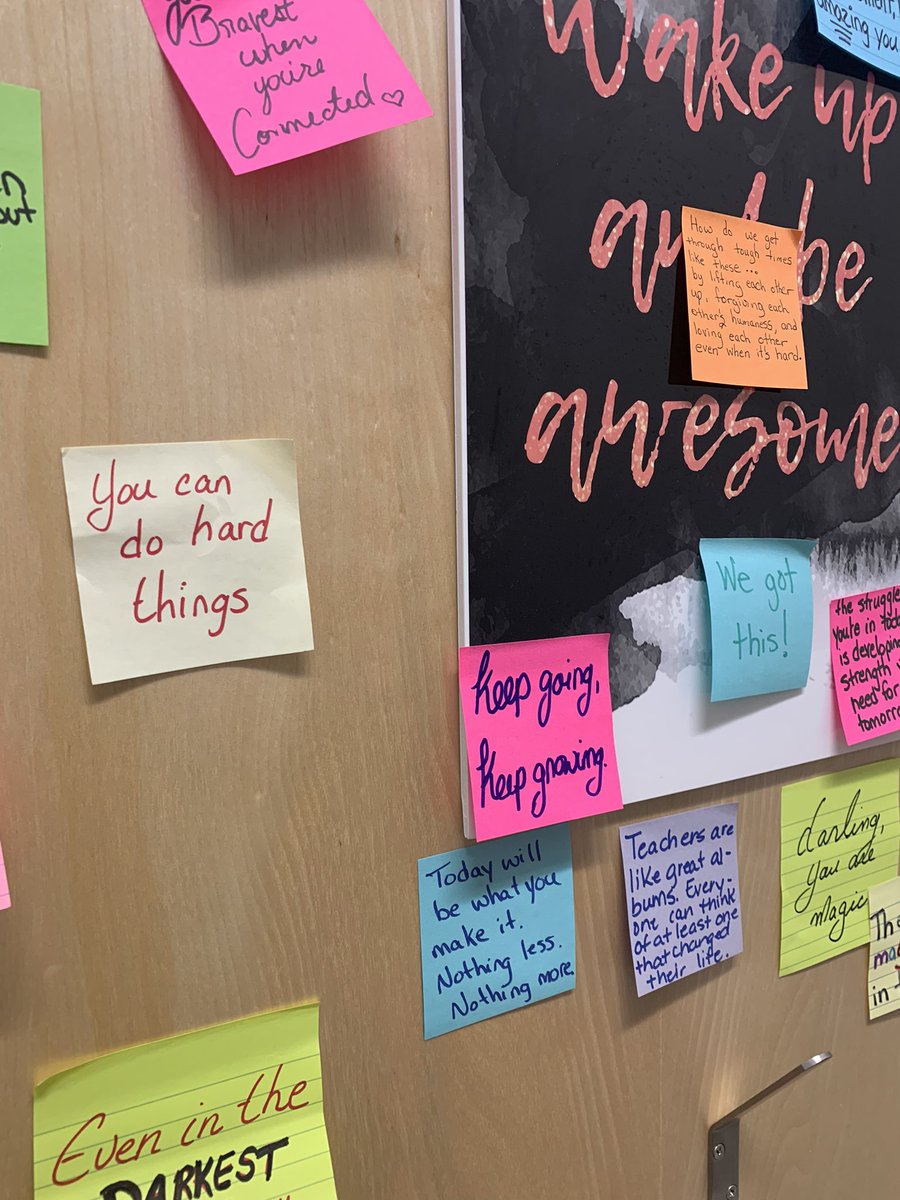 Bravest
when
you're
Connected
out
amazing you
Wake up
and be
awesome
How do we get
through tough times
like these...
by lifting each other
up, forgiving each
other's humaness, and
loving each other
even when it's hard.
You can
do hard
things
We got
this!
the struggle
you're in today
is developing
strength
need for
tomorrow
Keep going,
Keep growing.
Today will
be what you
make it.
Nothing less.
Nothing more.
Teachers are
like great al-
bums. Every-
one can think
of at least one
that changed
their life.
darling,
you are
magic
in
Even in the
DARKEST